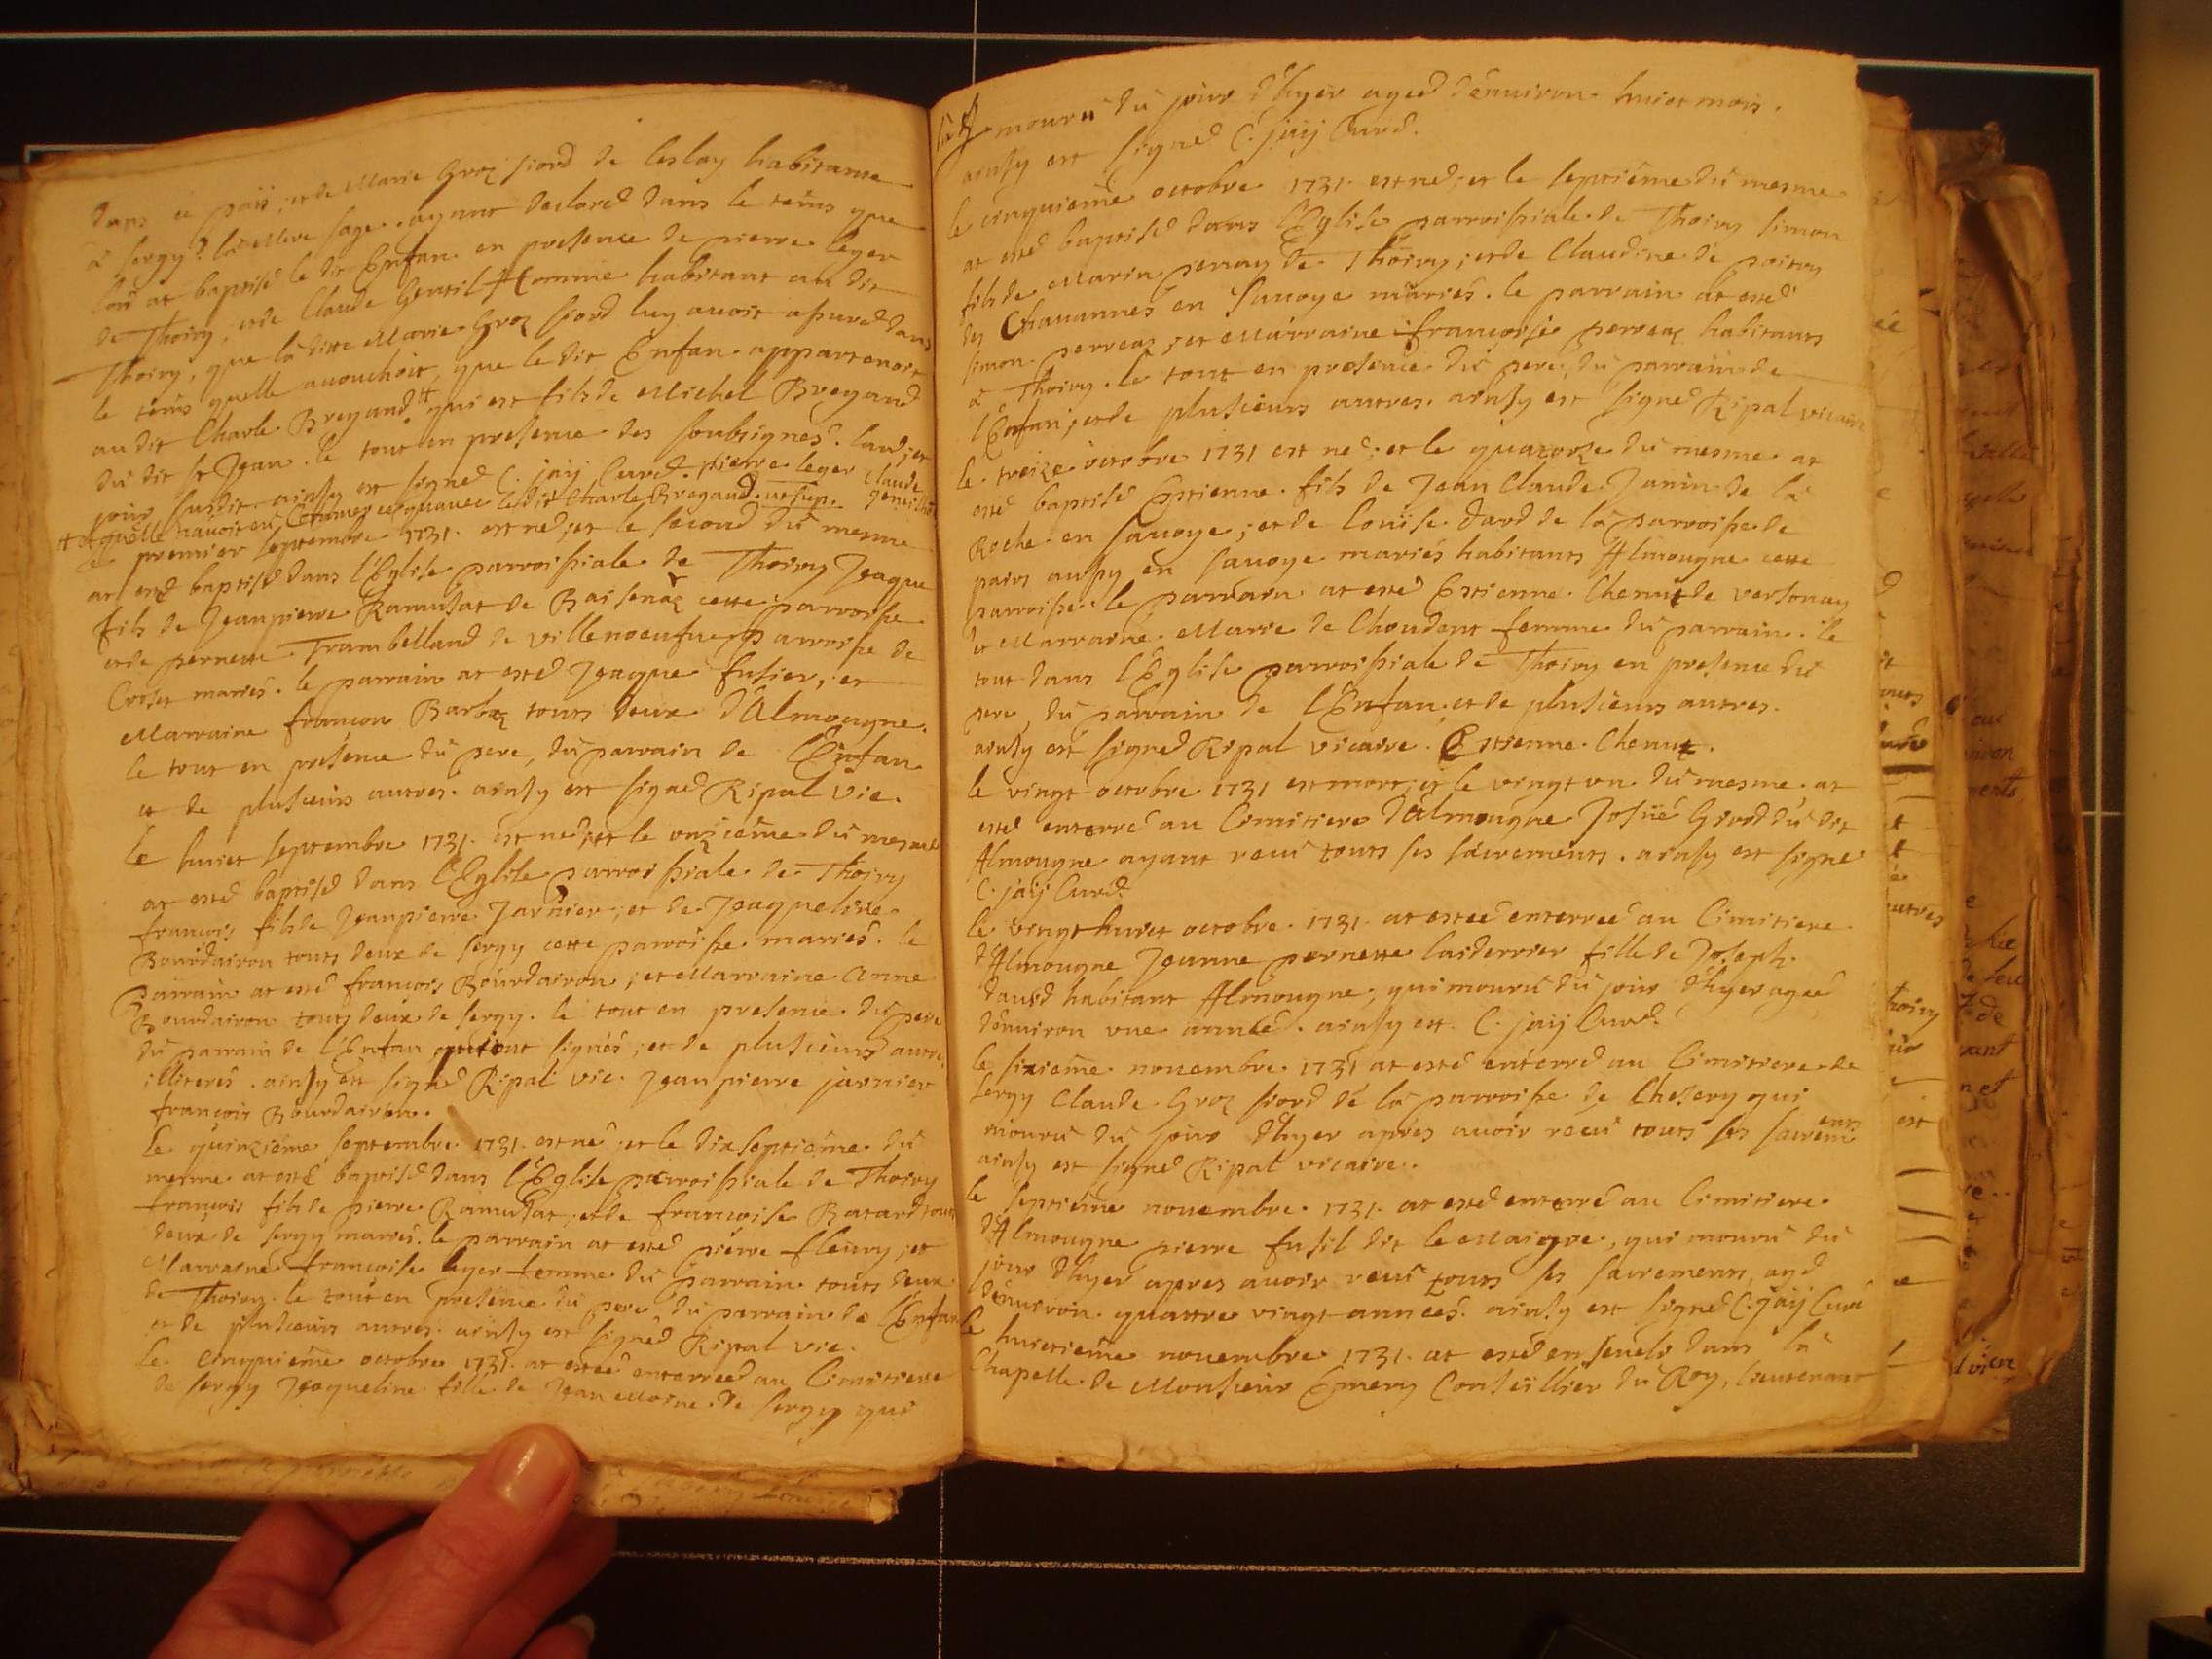 dans ce païs, et de Marie Groz fiord de leslay habitante
à sergy. la Mere sage ayant declaré dans le tems que
at baptisé le dit Enfan en presence de pierre leger
de Thoiry, et de Claude Gentil Homme habitant au dit
Thoiry, que la ditte Marie Groz fiord luy avoit assuré dans
le tems quelle accouchoit, que le dit Enfan appartenoit
au dit Charle Bregand # qui est fils de Michel Bregand
du dit st Jean. le tout en presence des soubsignés. l'an, et
jour susdit. ainsy est signé C. jaÿ Curé. pierre leger Claude
# et quelle navoit eu Commerce quavec le dit Charle Bregand. ut sup. Gentilho
le premier septembre 1731. est né, et le second du mesme
at esté baptisé dans l'Eglise parroissiale de Thoiry Jeaque
fils de Jeanpierre Ramusat de Baisenaz cette parroisse
et de pernette Trambelland de villenoeufue parroisse de
Croset mariés. le parrain at esté Jeaque fusier, et
Marraine françon Barbaz touts deux d'Almougne.
le tout en presence du pere, du parrain de l'Enfan
et de plusieurs autres. ainsy est signé Ripal vic.
le huict septembre 1731. est né, et le onzieme du mesme
at esté baptisé dans l'Eglise parroissiale de Thoiry
françois fils de Jeanpierre Jarnier, et de Jeaqueline
Bourdairon touts deux de sergy cette parroisse mariés. le
parrain at esté françois Bourdairon, et Marraine Anne
Bourdairon touts deux de sergy. le tout en presence du pere
du parrain de l'Enfan qui ont signés, et de plusieurs autre
illiterés. ainsy est signé Ripal vic. Jean pierre jarnier
françois Bourdairon.
Le quinzième septembre 1731. est né, et le dixseptième du
mesme at esté baptisé dans l'Eglise parroissiale de Thoiry
françois fils de pierre Ramusat, et de françoise Batard touts
deux de sergy mariés. le parrain at esté pierre fleury, et
Marraine françoise leger femme du parrain touts deux
de Thoiry. le tout en presence du pere du parrain de l'Enfan
et de plusieurs autres. ainsy est signé Ripal vic.
Le Cinquième octobre 1731. at estée enterrée au Cimitiere
de sergy Jeaqueline fille de Jean Moine de sergy qui
mouru du jour d'hyer ageé d'enuiron huict mois.
ainsy est signé C. jaÿ Curé.
le cinquième octobre 1731. est né, et le septième du mesme
at esté baptisé dans l'Eglise parroissiale de Thoiry simon
fils de Marin penay de Thoiry, et de Claudine de poitry
des Chauannes en sauoye mariés. le parrain at esté
simon perreaz, et Marraine françoise perreaz habitants
à Thoiry. le tout en presence du pere, du parrain de
l'Enfan, et de plusieurs autres. ainsy est signé Ripal vicaire
le treize octobre 1731 est né, et le quatorze du mesme at
esté baptisé Estienne fils de Jean Claude Janin de la
Roche en sauoye, et de Louïse dard de la parroisse de
pairs aussy en sauoye mariés habitants Almougne cette
parroisse. le parrain at esté Estienne Chenuz de versonay
et Marraine Marie de Choudent femme du parrain. le
tout dans l'Eglise parroissiale de Thoiry en presence du
pere, du parrain de l'Enfan, et de plusieurs autres.
ainsy est signé Ripal vicaire. Estienne Chenuz.
le vingt octobre 1731 est mort, et le vingt vn du mesme at
esté enterré au Cimitiere d'Almougne Josué Girod du dit
Almougne ayant receu touts ses sacrements. ainsy est signé
C. jaÿ Curé.
le vingt huict octobre 1731. at estée enterrée au Cimitiere
d'Almougne Jeanne pernette laiderrier fille de Joseph
daued habitant Almougne, qui mouru du jour d'hyer ageé
d'enuiron vne année. ainsy est. C. jaÿ Curé.
le sixième nouembre 1731 at esté enterré au Cimitiere de
sergy Claude Groz fiord de la parroisse de Chesery qui
mouru du jour d'hyer apres auoir receu touts ses sacrements
ainsy est signé Ripal vicaire.
le septième nouembre 1731. at esté enterré au Cimitiere
d'Almougne pierre fusil dit le Maigre, qui mouru du
jour d'hyer apres auoir receu touts ses sacrements, agé
d'enuiron quattre vingt années. ainsy est signé C. jaÿ Curé
le huictième nouembre 1731. at esté enseueli dans la
Chapelle de Monsieur Emery Conseillier du Roy, lieutenant